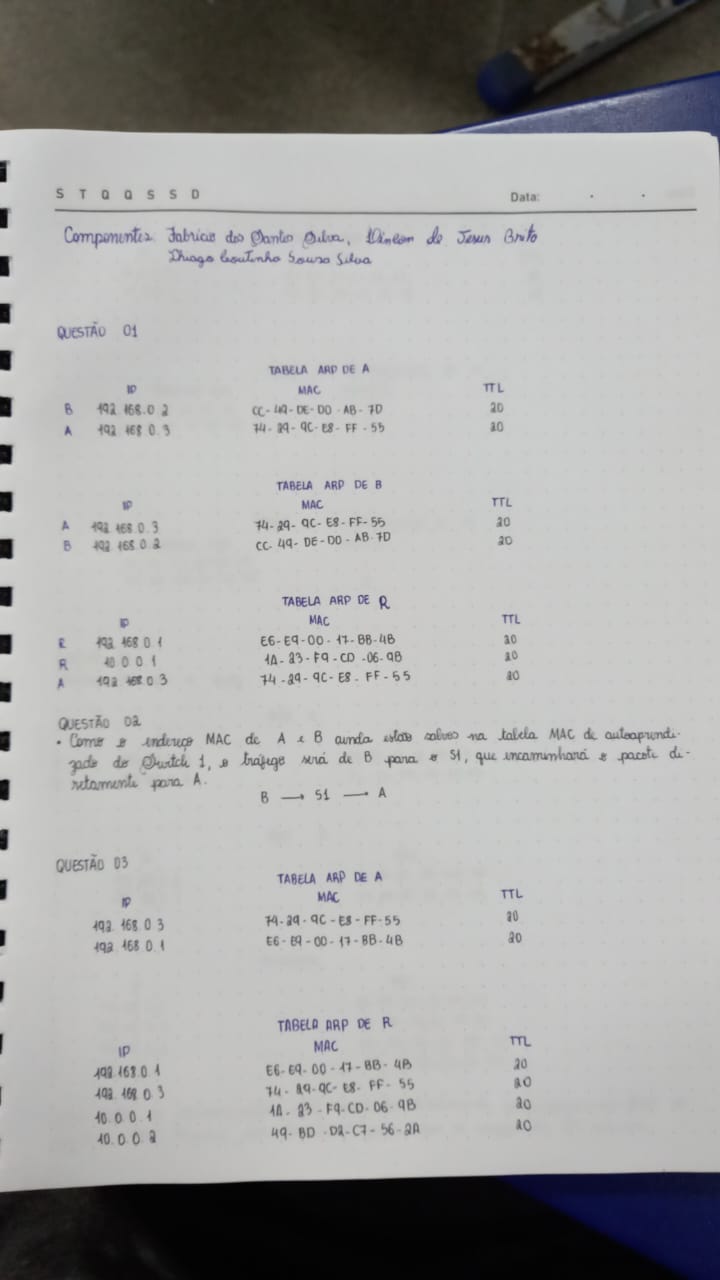 S T Q Q S S D Data: . .
Componentes: Fabricio dos Santos Silva, de Jesus Brito
Thiago Coutinho Sousa Silva
QUESTÃO 01
TABELA ARP DE A
IP MAC TTL
B 192.168.0.2 CC-49-DE-D0-AB-7D 20
A 192.168.0.3 74-29-9C-E8-FF-55 20
TABELA ARP DE B
IP MAC TTL
A 192.168.0.3 74-29-9C-E8-FF-55 20
B 192.168.0.2 CC-49-DE-D0-AB-7D 20
TABELA ARP DE R
IP MAC TTL
R 192.168.0.1 E6-E9-00-17-BB-4B 20
R 10.0.0.1 1A-23-F9-CD-06-9B 20
A 192.168.0.3 74-29-9C-E8-FF-55 20
QUESTÃO 02
• Como o endereço MAC de A e B ainda estão salvos na tabela MAC de autoaprendi-
zado do Switch 1, o tráfego será de B para o S1, que encaminhará o pacote di-
retamente para A.
B → S1 → A
QUESTÃO 03
TABELA ARP DE A
IP MAC TTL
192.168.0.3 74-29-9C-E8-FF-55 20
192.168.0.1 E6-E9-00-17-BB-4B 20
TABELA ARP DE R
IP MAC TTL
192.168.0.1 E6-E9-00-17-BB-4B 20
192.168.0.3 74-29-9C-E8-FF-55 20
10.0.0.1 1A-23-F9-CD-06-9B 20
10.0.0.2 49-BD-D2-C7-56-2A 20